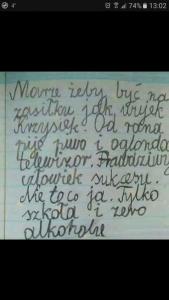 4°
74%
13:02
Marze żeby być na
zasiłku jak wujek
Krzysiek. Od rana
pije piwo i oglonda
telewizor. Prawdziwy
człowiek sukcesu.
Nie to co ja. Tylko
szkoła i zero
alkoholu